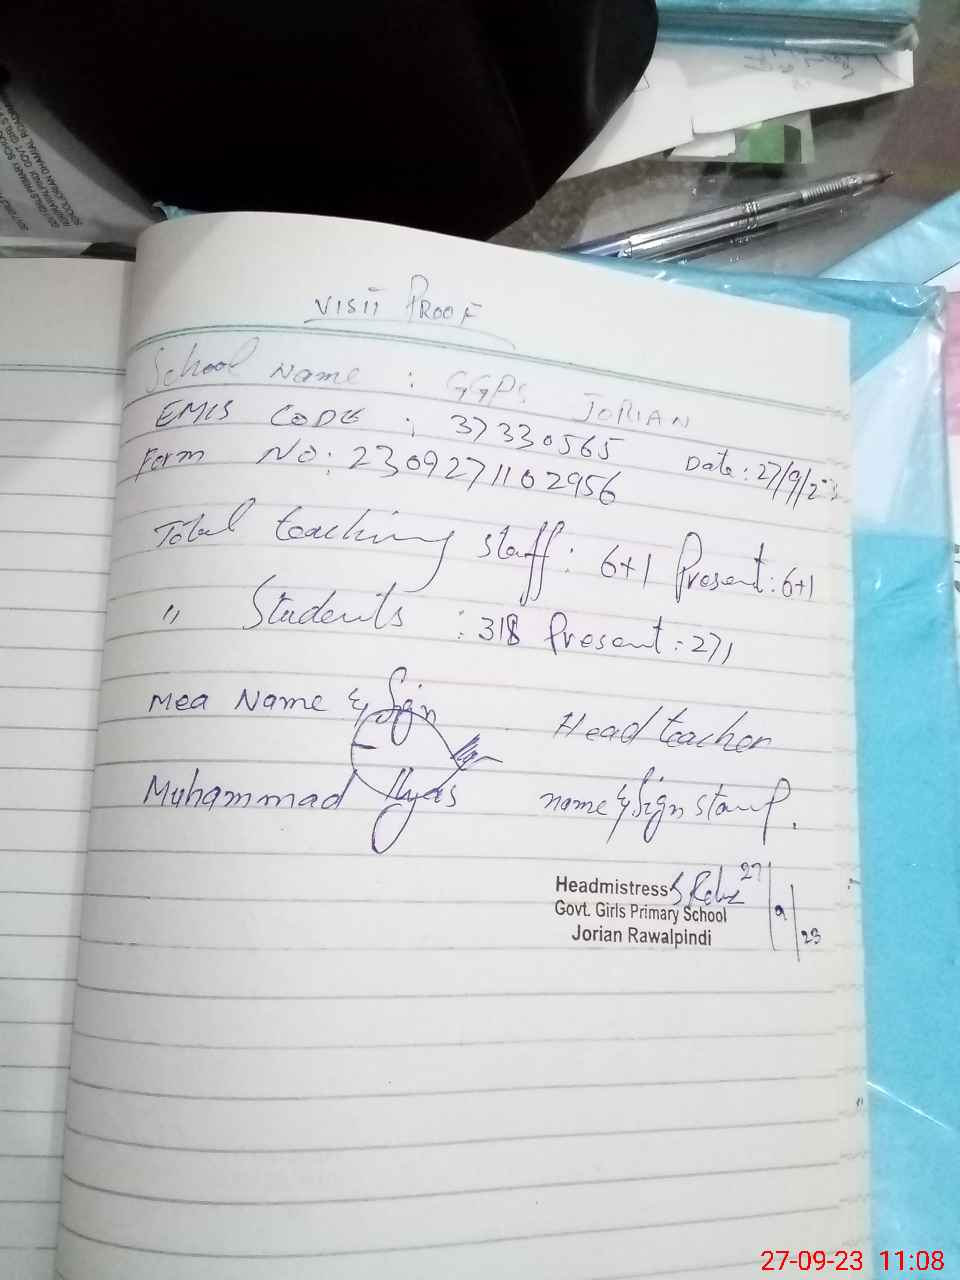 VISIT PROOF
School Name : GGPS JORIAN
EMIS CODE : 37330565
Date: 27/9/23
Form No: 2309271102956
Total teaching staff: 6+1 Present: 6+1
" Students : 318 Present: 271
Mea Name & Sign
Head teacher
Muhammad Ilyas
name & Sign stamp.
Headmistress
27/9/23
Govt. Girls Primary School
Jorian Rawalpindi
27-09-23 11:08